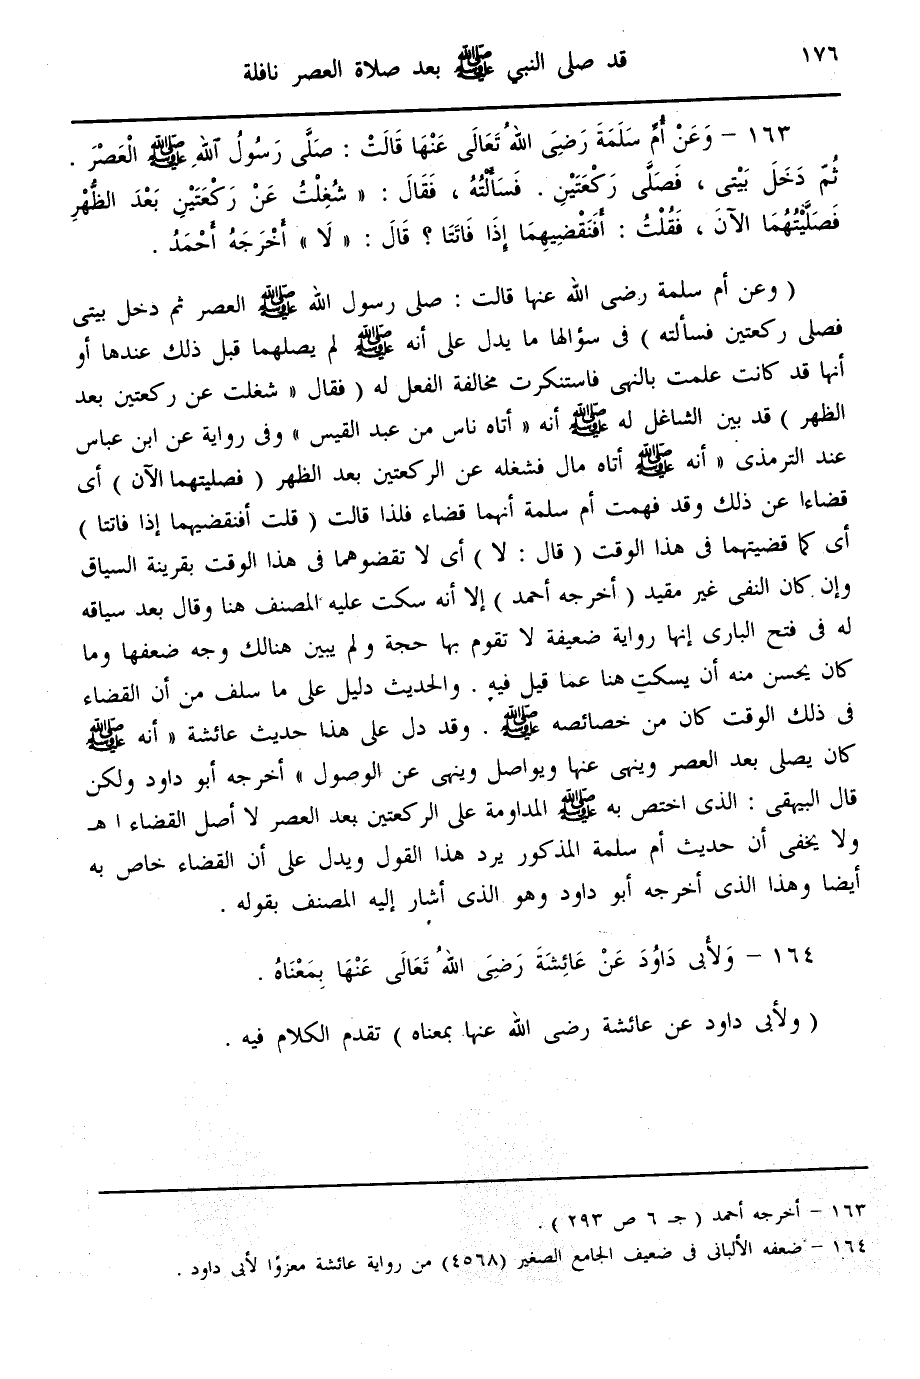 ١٧٦
قد صلى النبي ﷺ بعد صلاة العصر نافلة
١٦٣ – وَعَنْ أُمِّ سَلَمَةَ رَضِىَ اللهُ تَعَالَى عَنْهَا قَالَتْ : صَلَّى رَسُولُ اللهِ ﷺ الْعَصْرَ .
ثُمّ دَخَلَ بَيْتى ، فَصَلَّى رَكْعَتَيْنِ . فَسَأَلْتُهُ ، فَقَالَ : « شُغِلْتُ عَنْ رَكْعَتَيْنِ بَعْدَ الظُّهْرِ
فَصَلَّيْتُهُمَا الآنَ ، فَقُلْتُ : أَفَنَقْضِيهِمَا إِذَا فَاتَتَا ؟ قَالَ : « لَا » أَخْرَجَهُ أَحْمَدُ .
( وعن أم سلمة رضى الله عنها قالت : صلى رسول الله ﷺ العصر ثم دخل بيتى
فصلى ركعتين فسألته ) فى سؤالها ما يدل على أنه ﷺ لم يصلهما قبل ذلك عندها أو
أنها قد كانت علمت بالنهى فاستنكرت مخالفة الفعل له ( فقال « شغلت عن ركعتين بعد
الظهر ) قد بين الشاغل له ﷺ أنه « أتاه ناس من عبد القيس » وفى رواية عن ابن عباس
عند الترمذى « أنه ﷺ أتاه مال فشغله عن الركعتين بعد الظهر ( فصليتهما الآن ) أى
قضاءا عن ذلك وقد فهمت أم سلمة أنهما قضاء فلذا قالت ( قلت أفنقضيهما إذا فاتتا )
أى كما قضيتهما فى هذا الوقت ( قال : لا ) أى لا تقضوهما فى هذا الوقت بقرينة السياق
وإن كان النفى غير مقيد ( أخرجه أحمد ) إلا أنه سكت عليه المصنف هنا وقال بعد سياقه
له فى فتح البارى إنها رواية ضعيفة لا تقوم بها حجة ولم يبين هنالك وجه ضعفها وما
كان يحسن منه أن يسكت هنا عما قيل فيه . والحديث دليل على ما سلف من أن القضاء
فى ذلك الوقت كان من خصائصه ﷺ . وقد دل على هذا حديث عائشة « أنه ﷺ
كان يصلى بعد العصر وينهى عنها ويواصل وينهى عن الوصول » أخرجه أبو داود ولكن
قال البيهقى : الذى اختص به ﷺ المداومة على الركعتين بعد العصر لا أصل القضاء ا هـ
ولا يخفى أن حديث أم سلمة المذكور يرد هذا القول ويدل على أن القضاء خاص به
أيضا وهذا الذى أخرجه أبو داود وهو الذى أشار إليه المصنف بقوله .
١٦٤ – وَلأَبى دَاوُدَ عَنْ عَائِشَةَ رَضِىَ اللهُ تَعَالَى عَنْهَا بِمَعْنَاهُ .
( ولأبى داود عن عائشة رضى الله عنها بمعناه ) تقدم الكلام فيه .
١٦٣ – أخرجه أحمد ( جـ ٦ ص ٢٩٣ ) .
١٦٤ – ضعفه الألبانى فى ضعيف الجامع الصغير (٤٥٦٨) من رواية عائشة معزوًا لأبى داود .